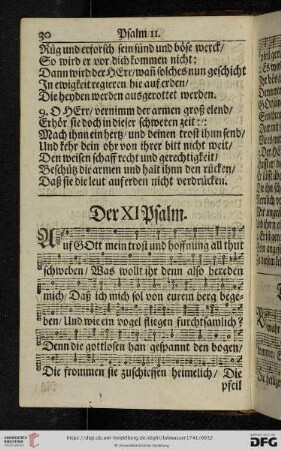 30 Psalm 11.
Rüg und erforsch sein sünd und böse werck/
So wird er vor dich kommen nicht:
Dann wird der HErr/ wañ solches nun geschicht
In ewigkeit regieren hie auf erden/
Die heyden werden ausgerottet werden.
9. O HErr/ vernimm der armen groß elend/
Erhör sie doch in dieser schweren zeit:/:
Mach ihnn ein hertz/ und deinen trost ihnn send/
Und kehr dein ohr von ihrer bitt nicht weit/
Den weisen schaff recht und gerechtigkeit/
Beschütz die armen und halt ihnn den rücken/
Daß sie die leut auf erden nicht verdrücken.
Der XI Psalm.
Auf GOtt mein trost und hoffnung all thut
schweben/ Was wollt ihr denn also bereden
mich/ Daß ich mich sol von eurem berg bege-
ben/ Und wie ein vogel fliegen furchtsamlich?
Denn die gottlosen han gespannt den bogen/
Die frommen sie zuschiessen heimelich/ Die
pfeil
http://digi.ub.uni-heidelberg.de/diglit/lobwasser1741/0052
© Universitätsbibliothek Heidelberg
gefördert durch die
DFG